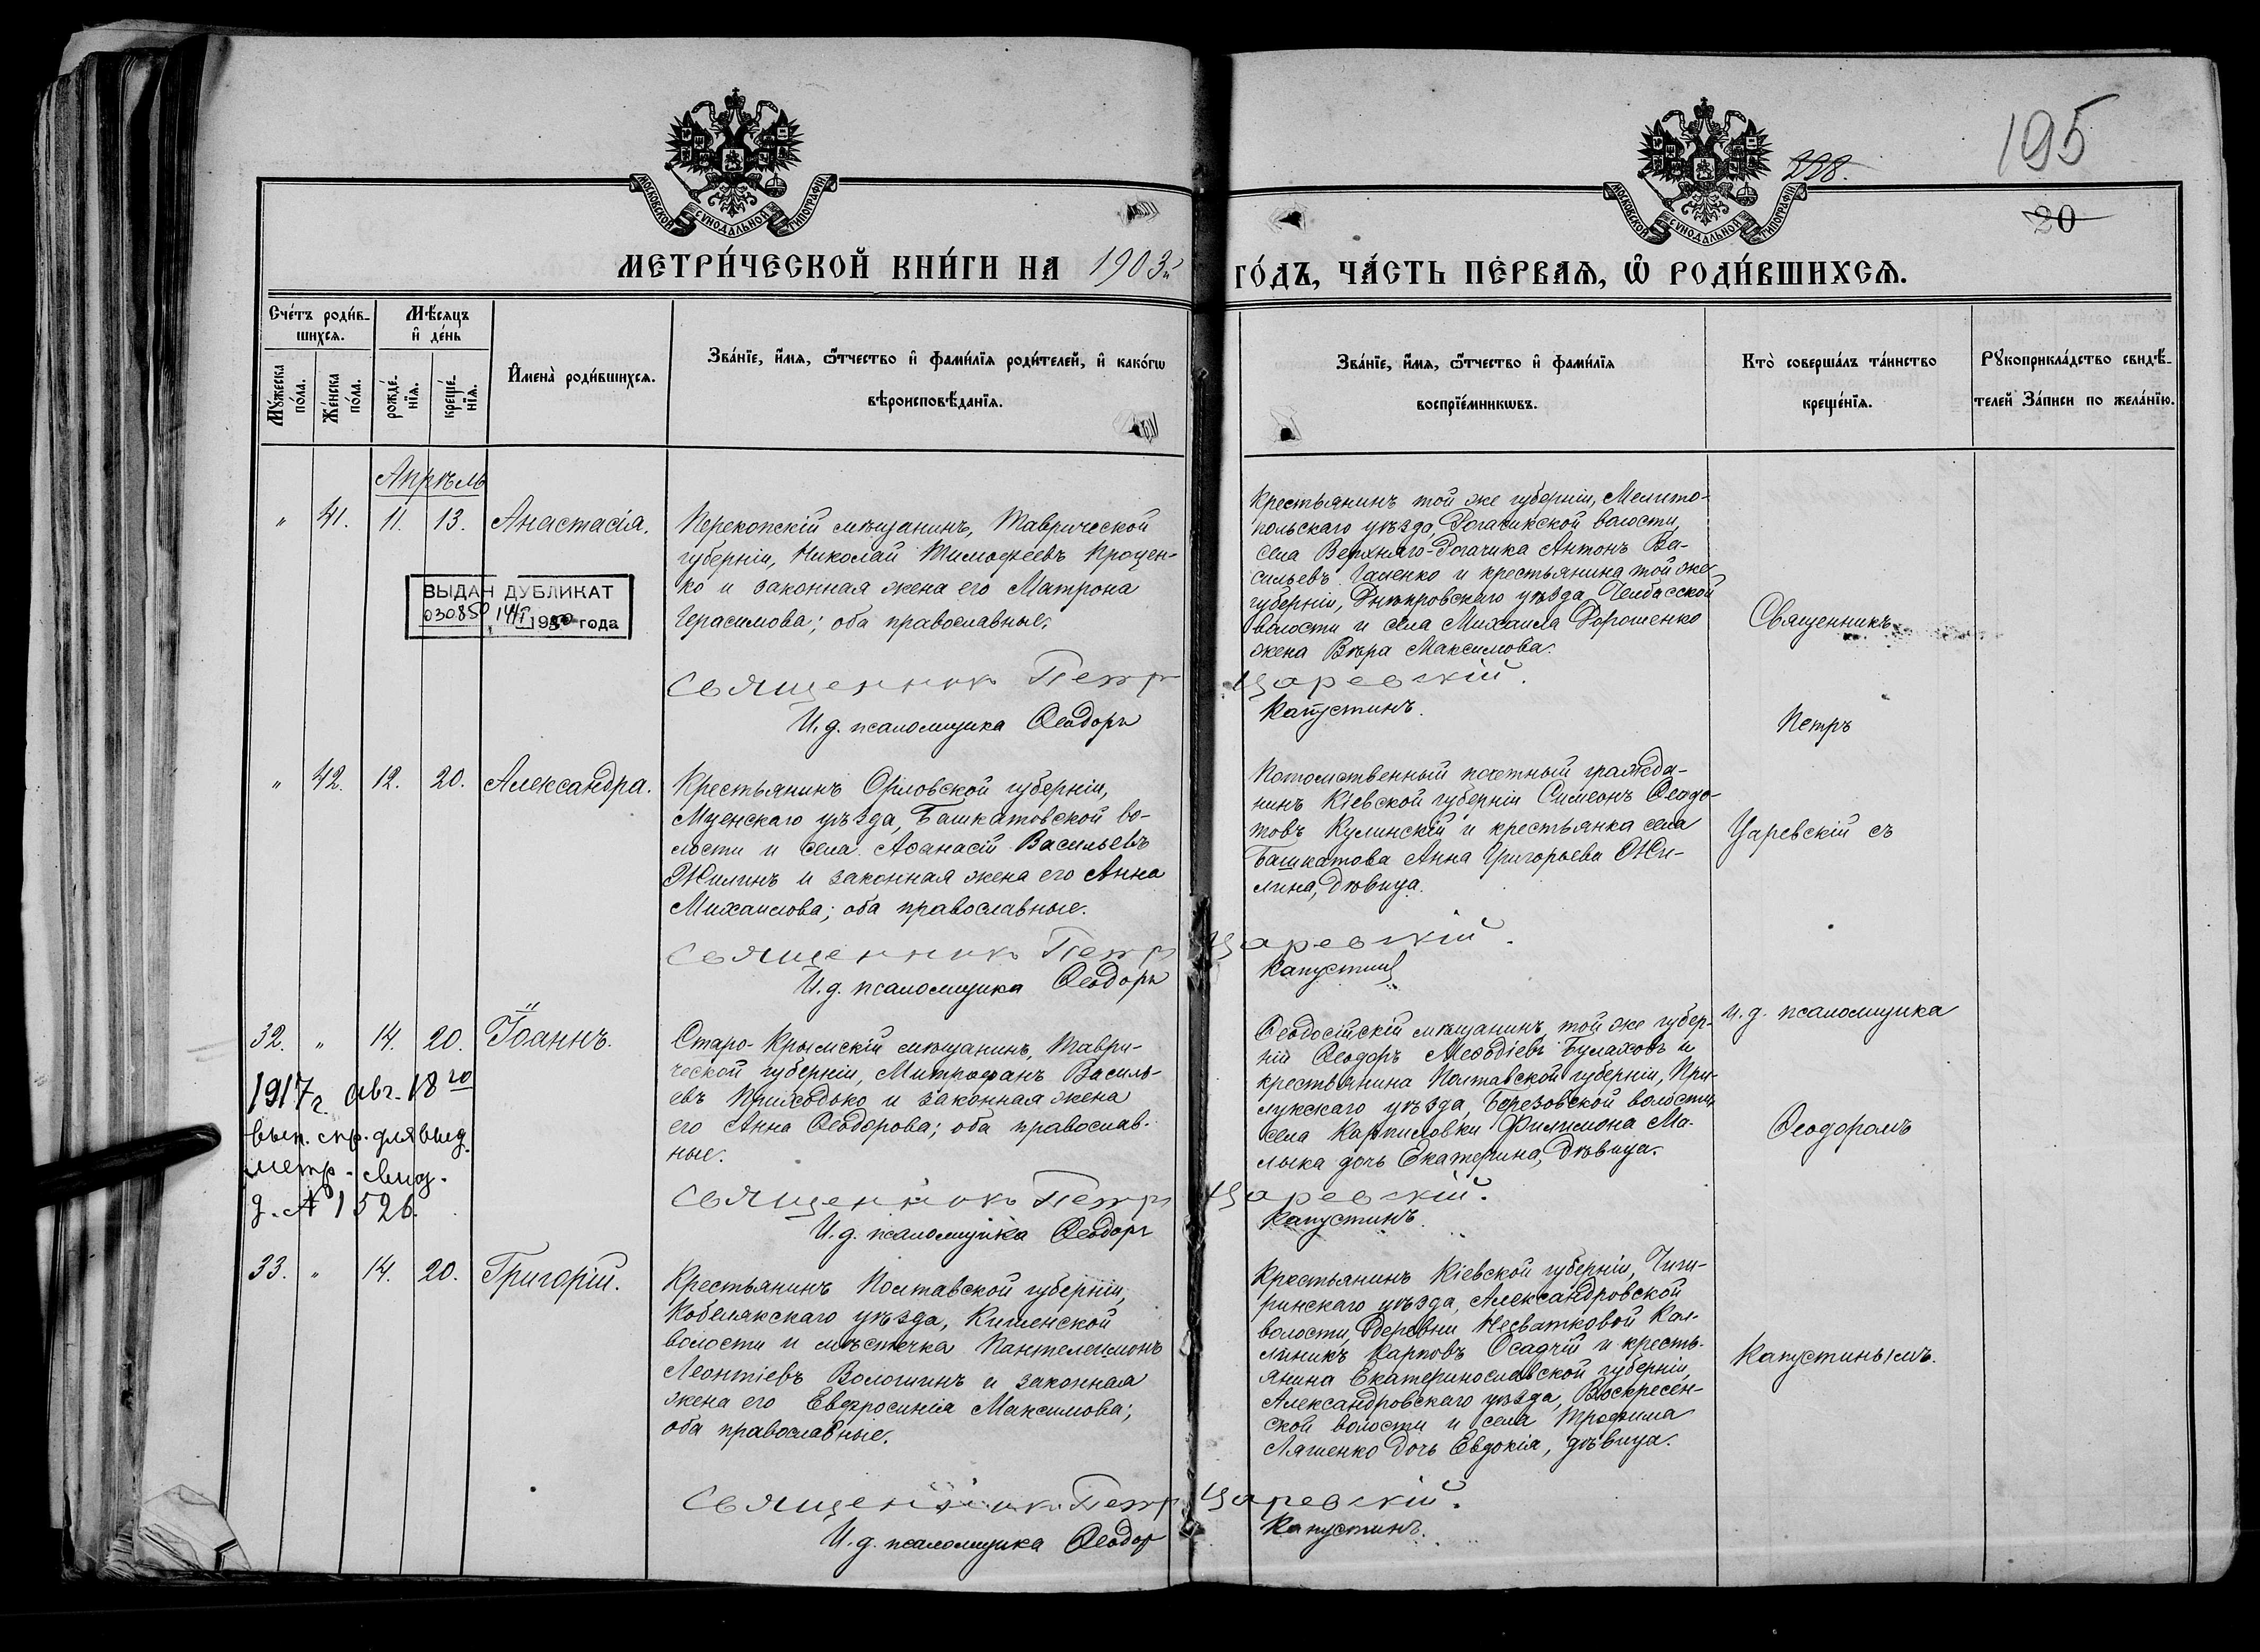 МОСКОВСКОЙ СѴНОДАЛЬНОЙ ТИПОГРАФІИ
МОСКОВСКОЙ СѴНОДАЛЬНОЙ ТИПОГРАФІИ
195
20
МЕТРИ́ЧЕСКОЙ КНИ́ГИ НА 1903й ГО́ДЪ, ЧА́СТЬ ПЕ́РВАѦ, Ѡ҆ РОДИ́ВШИХСѦ.
Сче́тъ роди́в-
шихсѧ.
Мѣ́сѧцъ
и҆ де́нь
Мꙋ́жеска
по́ла.
Же́нска
по́ла.
рожде́-
нїѧ.
креще́-
нїѧ.
И҆мена̀ роди́вшихсѧ.
Зва́нїе, и҆́мѧ, ѻ҆́тчество и҆ фами́лїѧ роди́телей, и҆ како́гѡ
вѣроисповѣ́данїѧ.
Зва́нїе, и҆́мѧ, ѻ҆́тчество и҆ фами́лїѧ
воспрїе́мникѡвъ.
Кто̀ соверша́лъ та́инство
креще́нїѧ.
Рꙋкоприкла́дство свидѣ́-
телей За́писи по жела́нїю.
Апрѣль
" 41. 11. 13. Анастасія.
Перекопскій мѣщанинъ, Таврической
губерніи, Николай Тимофеевъ Процен-
ко и законная жена его Матрона
Герасимова; оба православные.
Крестьянинъ той же губерніи, Мелито-
польскаго уѣзда, Рогачикской волости,
села Верхняго-Рогачика Антонъ Ва-
сильевъ Галенко и крестьянина той же
губерніи, Днѣпровскаго уѣзда, Челбасской
волости и села Михаила Дорошенко
жена Вѣра Максимова.
ВЫДАН ДУБЛИКАТ
030850
года
Священникъ Петръ Царевскій.
И. д. псаломщика Ѳеодоръ Капустинъ.
Священникъ
Петръ
" 42. 12. 20. Александра.
Крестьянинъ Орловской губерніи,
Мценскаго уѣзда, Башкатовской во-
лости и села Аѳанасій Васильевъ
Жилинъ и законная жена его Анна
Михаилова; оба православные.
Потомственный почетный гражда-
нинъ Кіевской губерніи Симеонъ Ѳеодо-
товъ Кулинскій и крестьянка села
Башкатова Анна Григорьева Жи-
лина, дѣвица.
Царевскій съ
Священникъ Петръ Царевскій.
И. д. псаломщика Ѳеодоръ Капустинъ
и. д. псаломщика
32. " 14. 20. Іоаннъ.
Старо-Крымскій мѣщанинъ, Таври-
ческой губерніи, Митрофанъ Василь-
евъ Приходько и законная жена
его Анна Ѳеодорова; оба православ-
ные.
Ѳеодосійскій мѣщанинъ, той же губер-
ніи Ѳеодоръ Меѳодіевъ Булаховъ и
крестьянина Полтавской губерніи, При-
лукскаго уѣзда, Березовской волости,
села Карпиловки Филимона Ма-
лыка дочь Екатерина, дѣвица.
1917 г. авг. 18го
вып. спр. для выд.
метр. свид.
з. № 1526.
Ѳеодоромъ
Священникъ Петръ Царевскій.
И. д. псаломщика Ѳеодоръ Капустинъ.
33. " 14. 20. Григорій.
Крестьянинъ Полтавской губерніи,
Кобелякскаго уѣзда, Кишенской
волости и мѣстечка Пантелеимонъ
Леонтіевъ Волошинъ и законная
жена его Евфросинія Максимова;
оба православные.
Крестьянинъ Кіевской губерніи, Чиги-
ринскаго уѣзда, Александровской
волости, деревни Несватковой Кал-
линикъ Карповъ Осадчій и кресть-
янина Екатеринославской губерніи,
Александровскаго уѣзда, Воскресен-
ской волости и села Трофима
Ляшенко дочь Евдокія, дѣвица.
Капустинымъ.
Священникъ Петръ Царевскій.
И. д. псаломщика Ѳеодоръ Капустинъ.